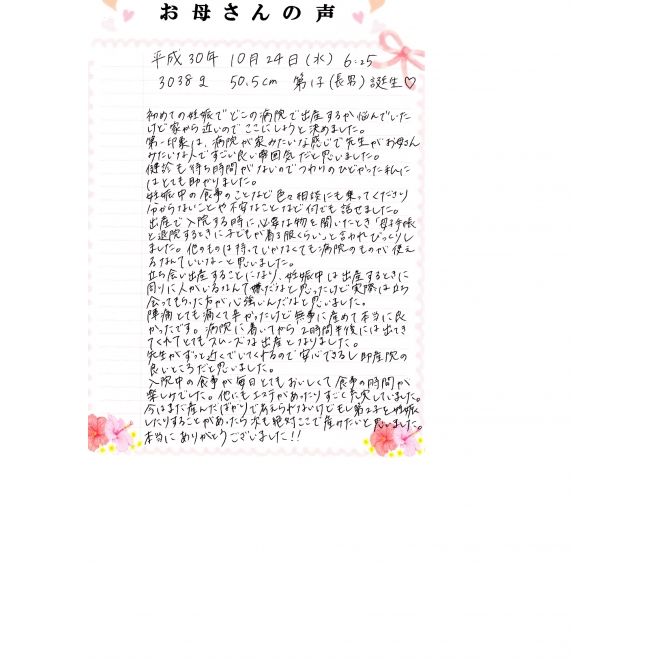 お母さんの声
平成30年 10月24日(水) 6:25
3038g 50.5cm 第1子(長男)誕生♡
初めての妊娠でどこの病院で出産するか悩んでいた
けど家から近いのでここにしようと決めました。
第一印象は、病院が家みたいな感じで先生がお母さん
みたいな人ですごい良い雰囲気だと思いました。
健診も待ち時間がないのでつわりのひどかった私に
はとても助かりました。
妊娠中の食事のことなど色々相談にも乗ってくださり
分からないことや不安なことなど何でも話せました。
出産で入院する時に必要な物を聞いたとき「母子手帳
と退院するときに子どもが着る服くらい」と言われびっくりし
ました。他のものは持っていかなくても病院のものが使え
るなんていいなーと思いました。
立ち会い出産することになり、妊娠中は出産するときに
周りに人がいるなんて嫌だなと思ったけど実際は立ち
会ってもらった方が心強いんだなと思いました。
陣痛とても痛くて辛かったけど無事に産めて本当に良
かったです。病院に着いてから2時間半後には出てき
てくれてとてもスムーズな出産となりました。
先生がずっと近くでいてくれるので安心できるし助産院の
良いところだと思いました。
入院中の食事が毎日とてもおいしくて食事の時間が
楽しみでした。他にもエステがあったりすごく充実していました。
今はまだ産んだばかりで考えられないけどもし第2子を妊娠
したりすることがあったら次も絶対ここで産みたいと思いました。
本当にありがとうございました!!